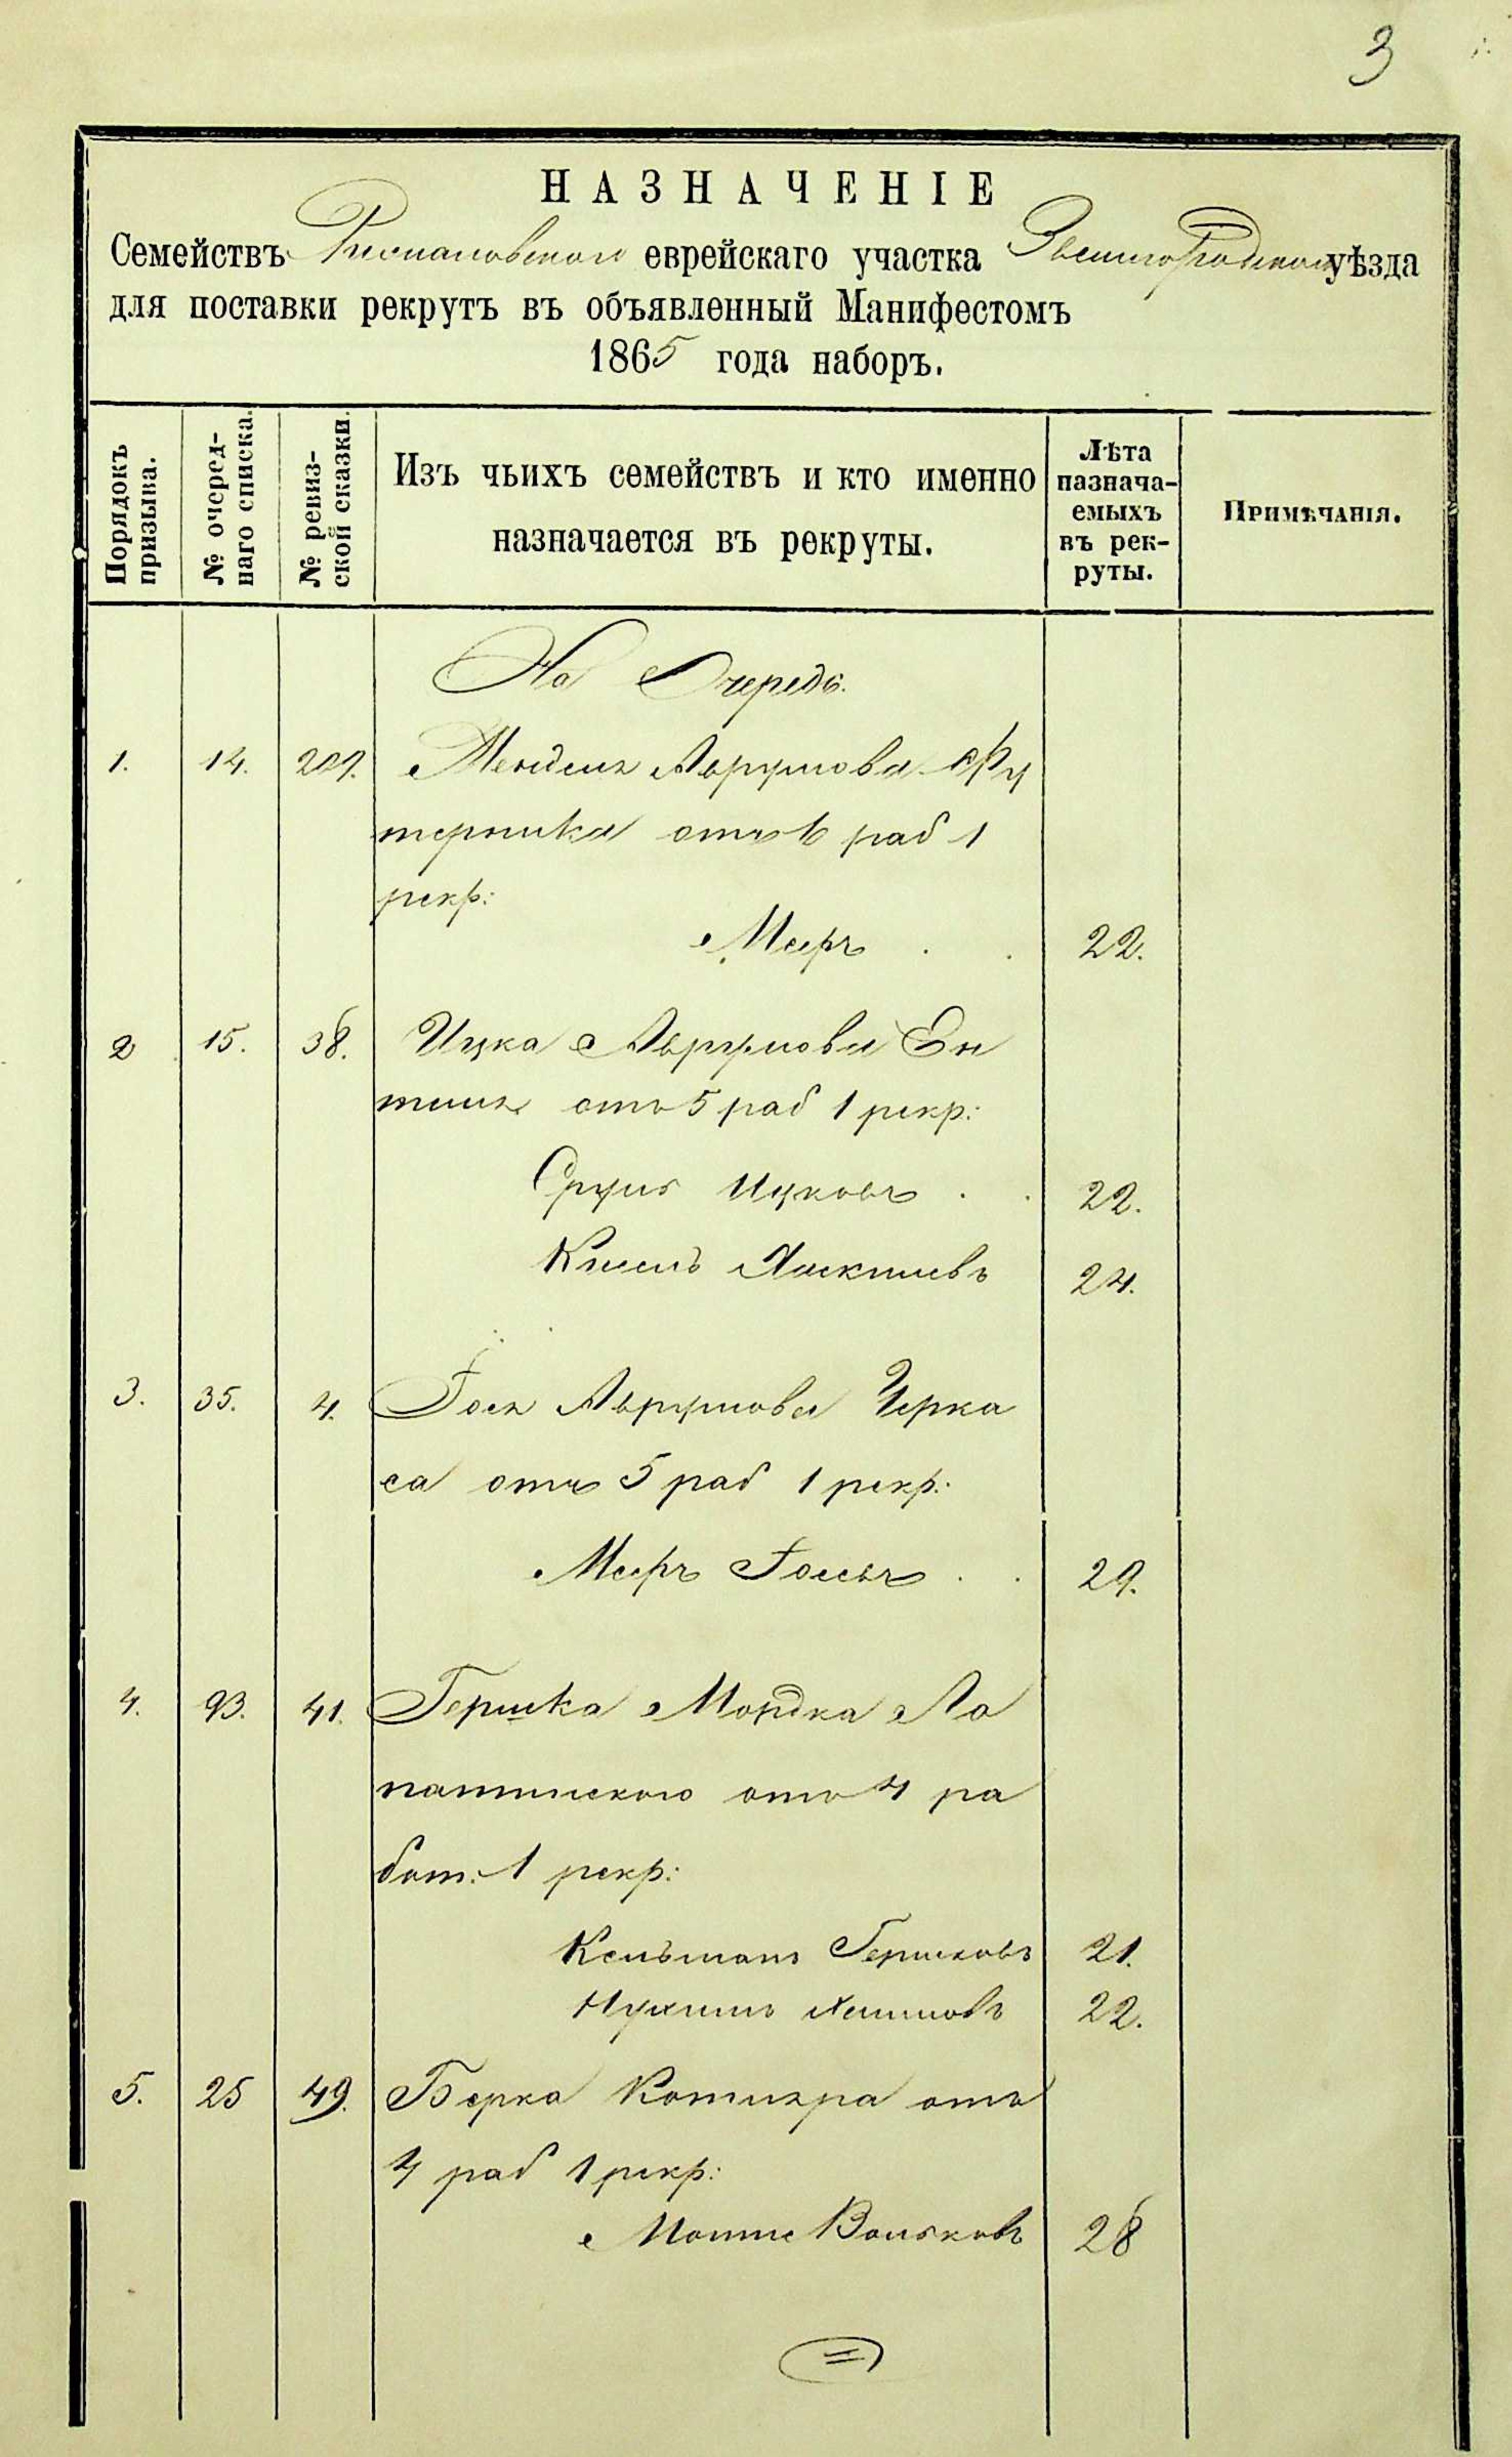 3
НАЗНАЧЕНІЕ
Семействъ Рисмановского еврейскаго участка Звенигородскаго уѣзда
для поставки рекрутъ въ объявленный Манифестомъ
1865 года наборъ.
Порядокъ призыва.
№ очеред-
наго списка.
№ ревиз-
ской сказки.
Изъ чьихъ семействъ и кто именно
назначается въ рекруты.
Лѣта
назнача-
емыхъ
въ рек-
руты.
Примѣчанія.
На Очередь.
1. 14. 209. Мендель Аврумова Фу
терника отъ 6 раб 1
рекр:
Мееръ 22.
2 15. 38. Ицка Аврумова Ен
тель отъ 5 раб 1 рекр:
Сруль Ицковъ 22.
Кисель Хаскелевъ 24.
3. 35. 4. Іось Аврумова Черка
са отъ 5 раб 1 рекр:
Мееръ Іосевъ 29.
4. 93. 41. Гершка Мордка Ло
патинского отъ 4 ра
бот: 1 рекр:
Кельманъ Гершковъ 21.
Нухимъ Хаимовъ 22.
5. 25 49. Берка отъ
4 раб 1 рекр:
Мошие Вольковъ 28